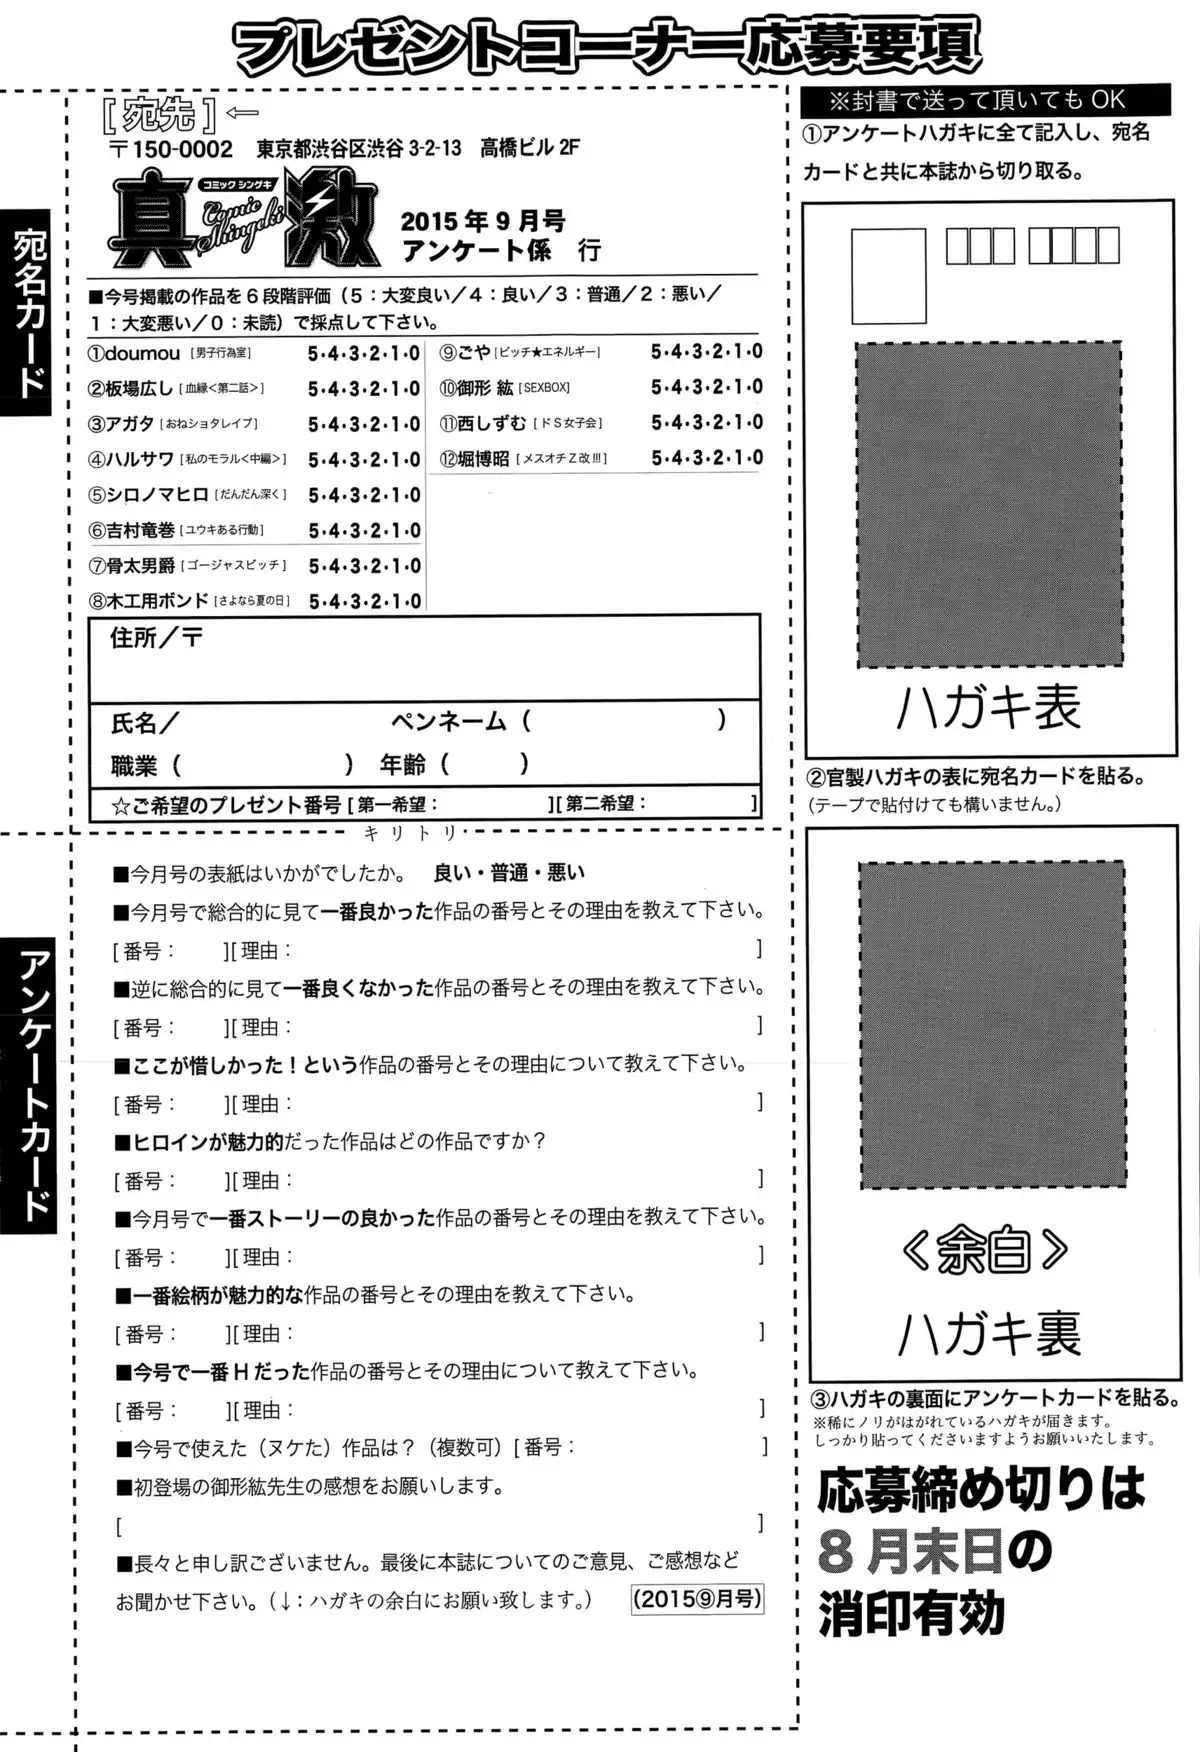 プレゼントコーナー応募要項
宛名カード
[ 宛先 ] ←
〒150-0002 東京都渋谷区渋谷 3-2-13 高橋ビル 2F
真激
コミック シンゲキ
Comic Shingeki
2015 年 9 月号
アンケート係 行
■今号掲載の作品を 6 段階評価（5：大変良い／4：良い／3：普通／2：悪い／
1：大変悪い／0：未読）で採点して下さい。
①doumou [男子行為室] 5・4・3・2・1・0
②板場広し [血縁<第二話>] 5・4・3・2・1・0
③アガタ [おねショタレイプ] 5・4・3・2・1・0
④ハルサワ [私のモラル<中編>] 5・4・3・2・1・0
⑤シロノマヒロ [だんだん深く] 5・4・3・2・1・0
⑥吉村竜巻 [ユウキある行動] 5・4・3・2・1・0
⑦骨太男爵 [ゴージャスビッチ] 5・4・3・2・1・0
⑧木工用ボンド [さよなら夏の日] 5・4・3・2・1・0
⑨ごや [ビッチ★エネルギー] 5・4・3・2・1・0
⑩御形 紘 [SEXBOX] 5・4・3・2・1・0
⑪西しずむ [ドS女子会] 5・4・3・2・1・0
⑫堀博昭 [メスオチZ改!!!] 5・4・3・2・1・0
住所／〒
氏名／ ペンネーム（ ）
職業（ ） 年齢（ ）
☆ご希望のプレゼント番号 [ 第一希望： ][ 第二希望： ]
キリトリ
アンケートカード
■今月号の表紙はいかがでしたか。 良い・普通・悪い
■今月号で総合的に見て一番良かった作品の番号とその理由を教えて下さい。
[ 番号： ][ 理由： ]
■逆に総合的に見て一番良くなかった作品の番号とその理由を教えて下さい。
[ 番号： ][ 理由： ]
■ここが惜しかった！という作品の番号とその理由について教えて下さい。
[ 番号： ][ 理由： ]
■ヒロインが魅力的だった作品はどの作品ですか？
[ 番号： ][ 理由： ]
■今月号で一番ストーリーの良かった作品の番号とその理由を教えて下さい。
[ 番号： ][ 理由： ]
■一番絵柄が魅力的な作品の番号とその理由を教えて下さい。
[ 番号： ][ 理由： ]
■今号で一番 H だった作品の番号とその理由について教えて下さい。
[ 番号： ][ 理由： ]
■今号で使えた（ヌケた）作品は？（複数可）[ 番号： ]
■初登場の御形紘先生の感想をお願いします。
[ ]
■長々と申し訳ございません。最後に本誌についてのご意見、ご感想など
お聞かせ下さい。（↓：ハガキの余白にお願い致します。） (2015⑨月号)
※封書で送って頂いてもOK
①アンケートハガキに全て記入し、宛名
カードと共に本誌から切り取る。
ハガキ表
②官製ハガキの表に宛名カードを貼る。
（テープで貼付けても構いません。）
＜余白＞
ハガキ裏
③ハガキの裏面にアンケートカードを貼る。
※稀にノリがはがれているハガキが届きます。
しっかり貼ってくださいますようお願いいたします。
応募締め切りは
8 月末日の
消印有効